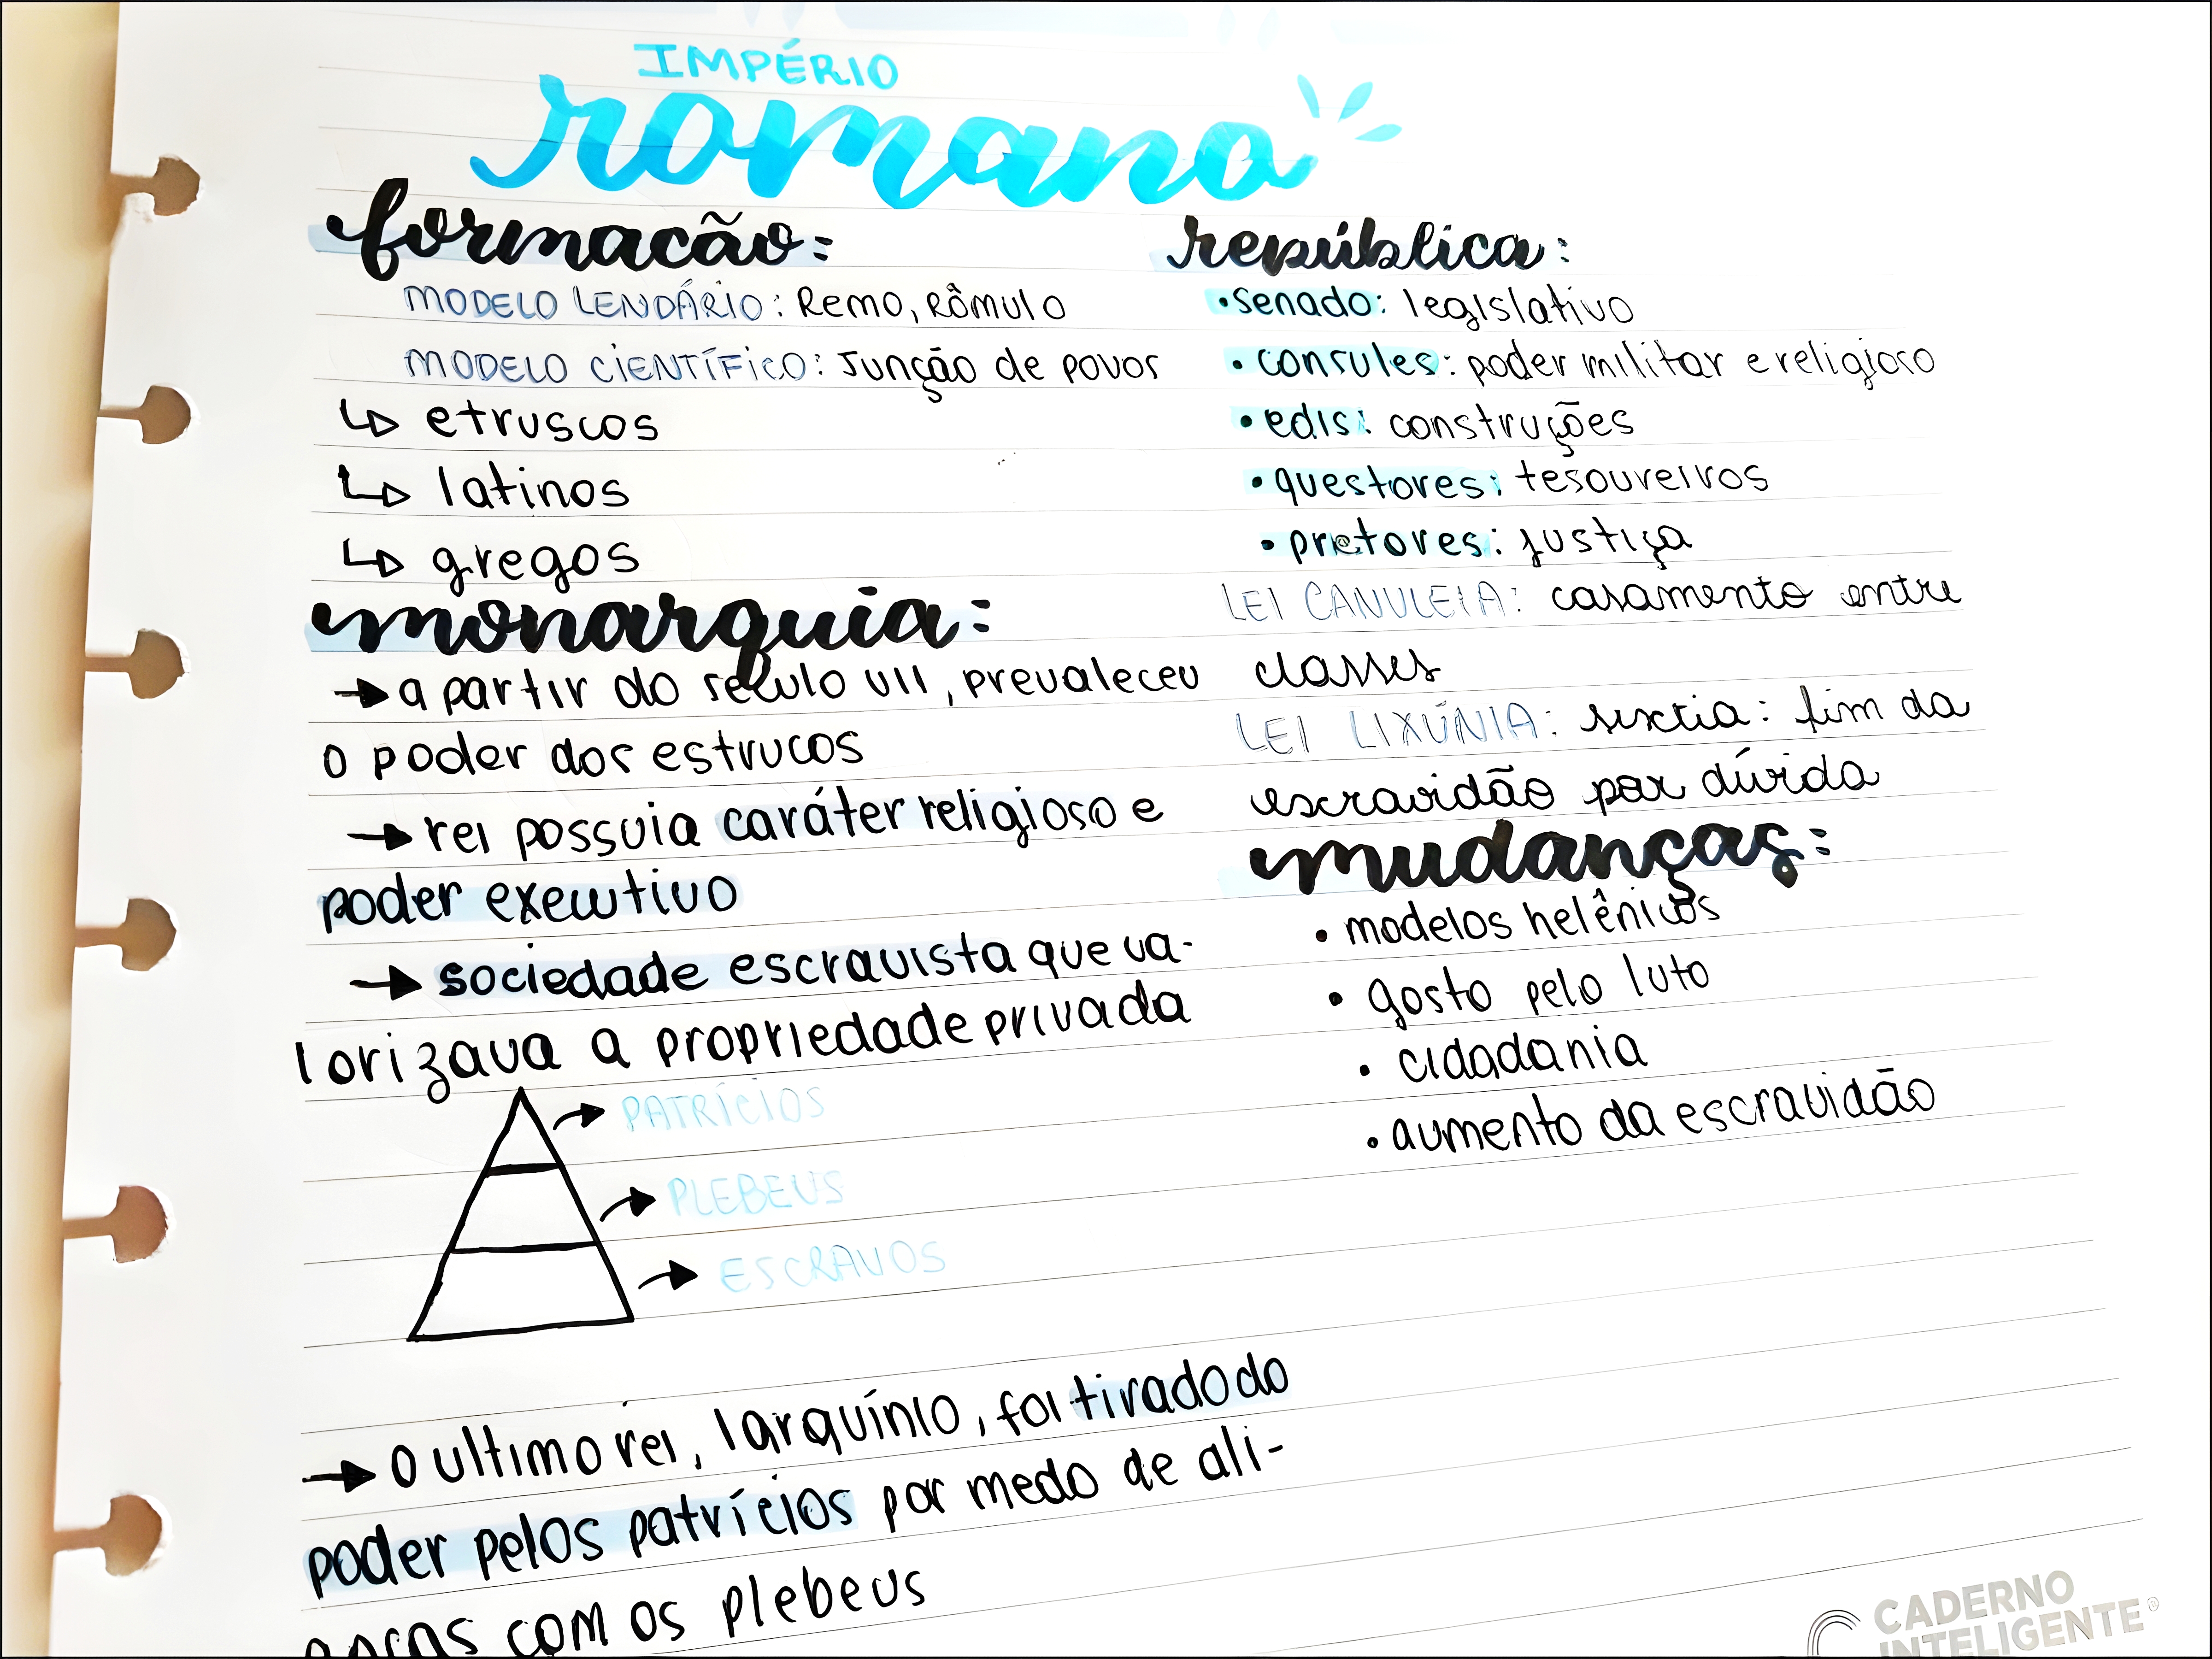 IMPÉRIO
romano
formacão:
MODELO LENDÁRIO: Remo, Rômulo
MODELO CIENTÍFICO: Junção de povos
etruscos
latinos
gregos
monarquia:
→ a partir do século VII, prevaleceu
o poder dos estrucos
→ rei possuia caráter religioso e
poder executivo
→ sociedade escravista que va-
lorizava a propriedade privada
→ PATRÍCIOS
→ PLEBEUS
→ ESCRAVOS
→ O ultimo rei, Tarquínio, foi tirado do
poder pelos patrícios por medo de ali-
anças com os plebeus
república:
• senado: legislativo
• consules: poder militar e religioso
• edis: construções
• questores: tesoureiros
• pretores: justiça
LEI CANULEIA: casamento entre
classes
LEI LIXÚNIA: sextia: fim da
escravidão por dívida
mudanças:
• modelos helênicos
• gosto pelo luto
• cidadania
• aumento da escravidão
CADERNO
INTELIGENTE®